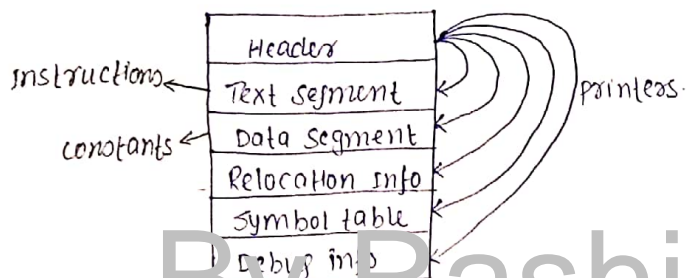 Header
instructions
Text segment
printers.
constants
Data segment
Relocation Info
Symbol table
Debug info
By Rashi